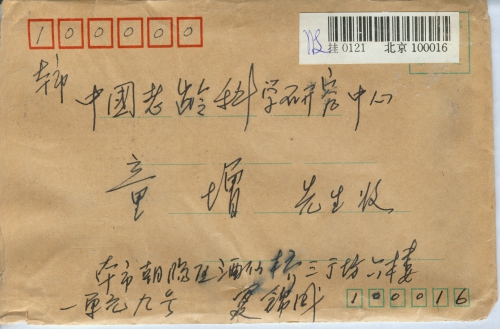 100000
挂 0121 北京 100016
本市
中國老龄科学研究中心
童 增 先生收
本市朝阳区酒仙桥三丁坊六楼
一单元九号 夏锦
100016